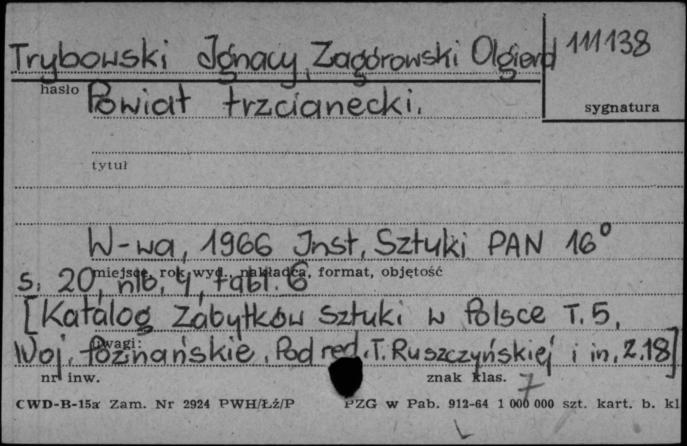 Trybowski Ignacy, Zagórowski Olgierd 111138
hasło Powiat trzcianecki. sygnatura
tytuł
W-wa, 1966 Inst. Sztuki PAN 16°
miejsce, rok wyd., nakładca, format, objętość
s. 20, nlb. 4, tabl. 6
[Katalog Zabytków Sztuki w Polsce T. 5,
Uwagi:
Woj. Poznańskie. Pod red. T. Ruszczyńskiej i in, z. 18]
nr inw. znak klas. 7
CWD-B-15a Zam. Nr 2924 PWH/Łź/P PZG w Pab. 912-64 1 000 000 szt. kart. b. kl